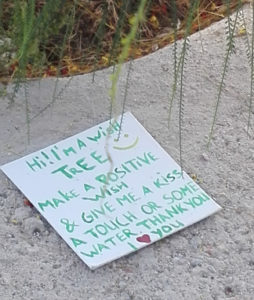 Hi! I'm A WISH
TREE
MAKE A POSITIVE
WISH
& GIVE ME A KISS,
A TOUCH OR SOME
WATER. THANK YOU
YOU